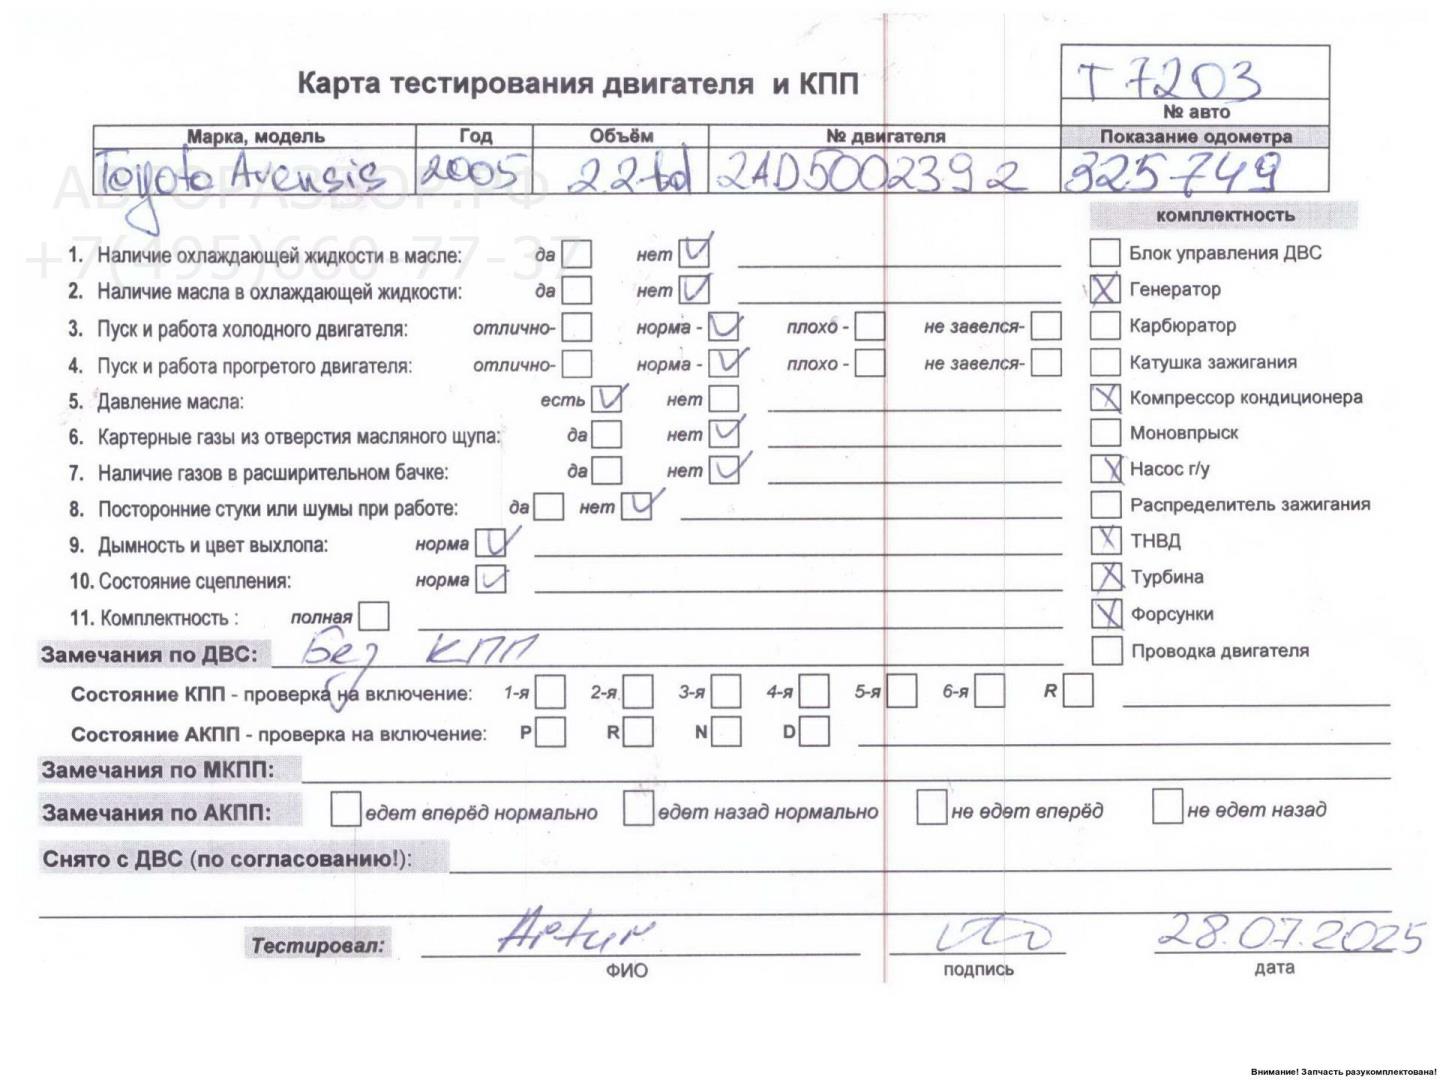 Карта тестирования двигателя и КПП
T 7203
№ авто
Марка, модель Год Объём № двигателя Показание одометра
Toyota Avensis 2005 2.2td 2AD5002392 325749
АВТОРАЗБОР.РФ
+7(495)660-77-37
комплектность
1. Наличие охлаждающей жидкости в масле: да нет Блок управления ДВС
2. Наличие масла в охлаждающей жидкости: да нет Генератор
3. Пуск и работа холодного двигателя: отлично- норма - плохо - не завелся- Карбюратор
4. Пуск и работа прогретого двигателя: отлично- норма - плохо - не завелся- Катушка зажигания
5. Давление масла: есть нет Компрессор кондиционера
6. Картерные газы из отверстия масляного щупа: да нет Моновпрыск
7. Наличие газов в расширительном бачке: да нет Насос г/у
8. Посторонние стуки или шумы при работе: да нет Распределитель зажигания
9. Дымность и цвет выхлопа: норма ТНВД
10. Состояние сцепления: норма Турбина
11. Комплектность : полная Форсунки
Замечания по ДВС: Без КПП Проводка двигателя
Состояние КПП - проверка на включение: 1-я 2-я 3-я 4-я 5-я 6-я R
Состояние АКПП - проверка на включение: P R N D
Замечания по МКПП:
Замечания по АКПП: едет вперёд нормально едет назад нормально не едет вперёд не едет назад
Снято с ДВС (по согласованию!):
Тестировал: Artur 28.07.2025
ФИО подпись дата
Внимание! Запчасть разукомплектована!